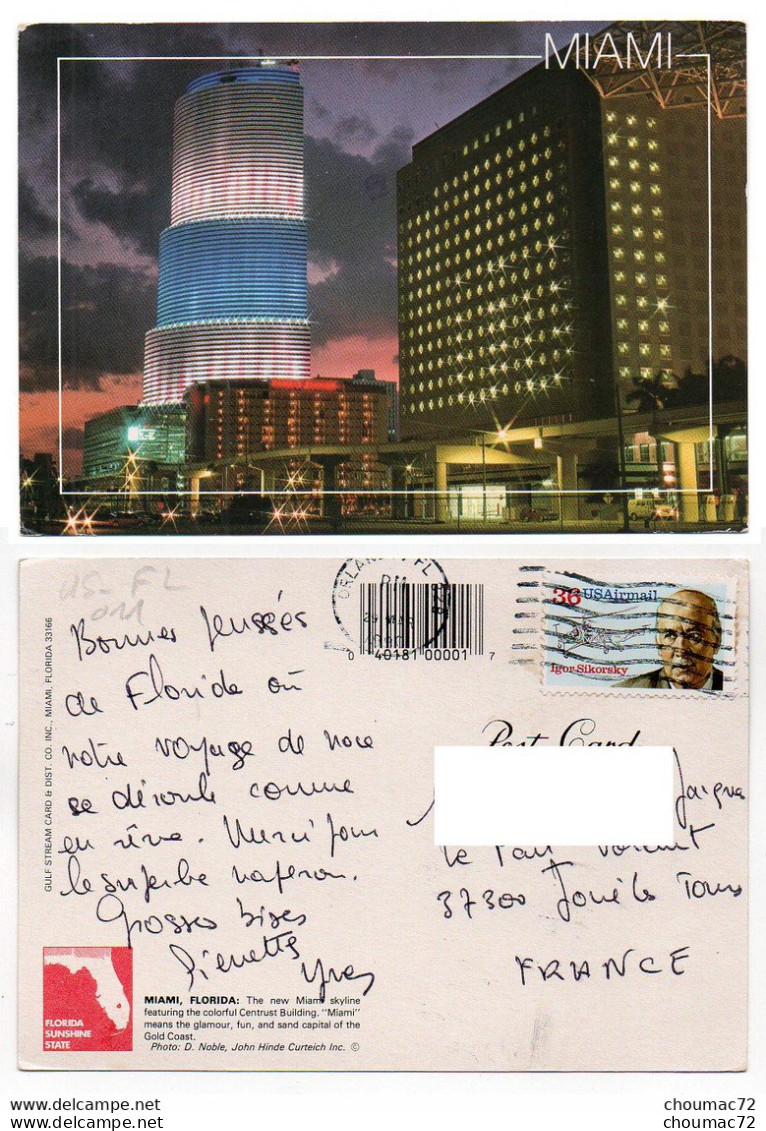 MIAMI
US-FL
011
ORLANDO, FL
PM
29 MAR
1990
0 40181 00001 7
36 USAirmail
Igor Sikorsky
Post Card
GULF STREAM CARD & DIST. CO. INC., MIAMI, FLORIDA 33166
Bonnes pensées
de Floride où
notre voyage de noce
se déroule comme
en rêve. Merci pour
le superbe napperon.
Grosses bises
Pierrette
Yves
37300 Joué les Tours
FRANCE
FLORIDA
SUNSHINE
STATE
MIAMI, FLORIDA: The new Miami skyline
featuring the colorful Centrust Building. "Miami"
means the glamour, fun, and sand capital of the
Gold Coast.
Photo: D. Noble, John Hinde Curteich Inc. ©
EN - US 1695 - Miami
choumac72
choumac72